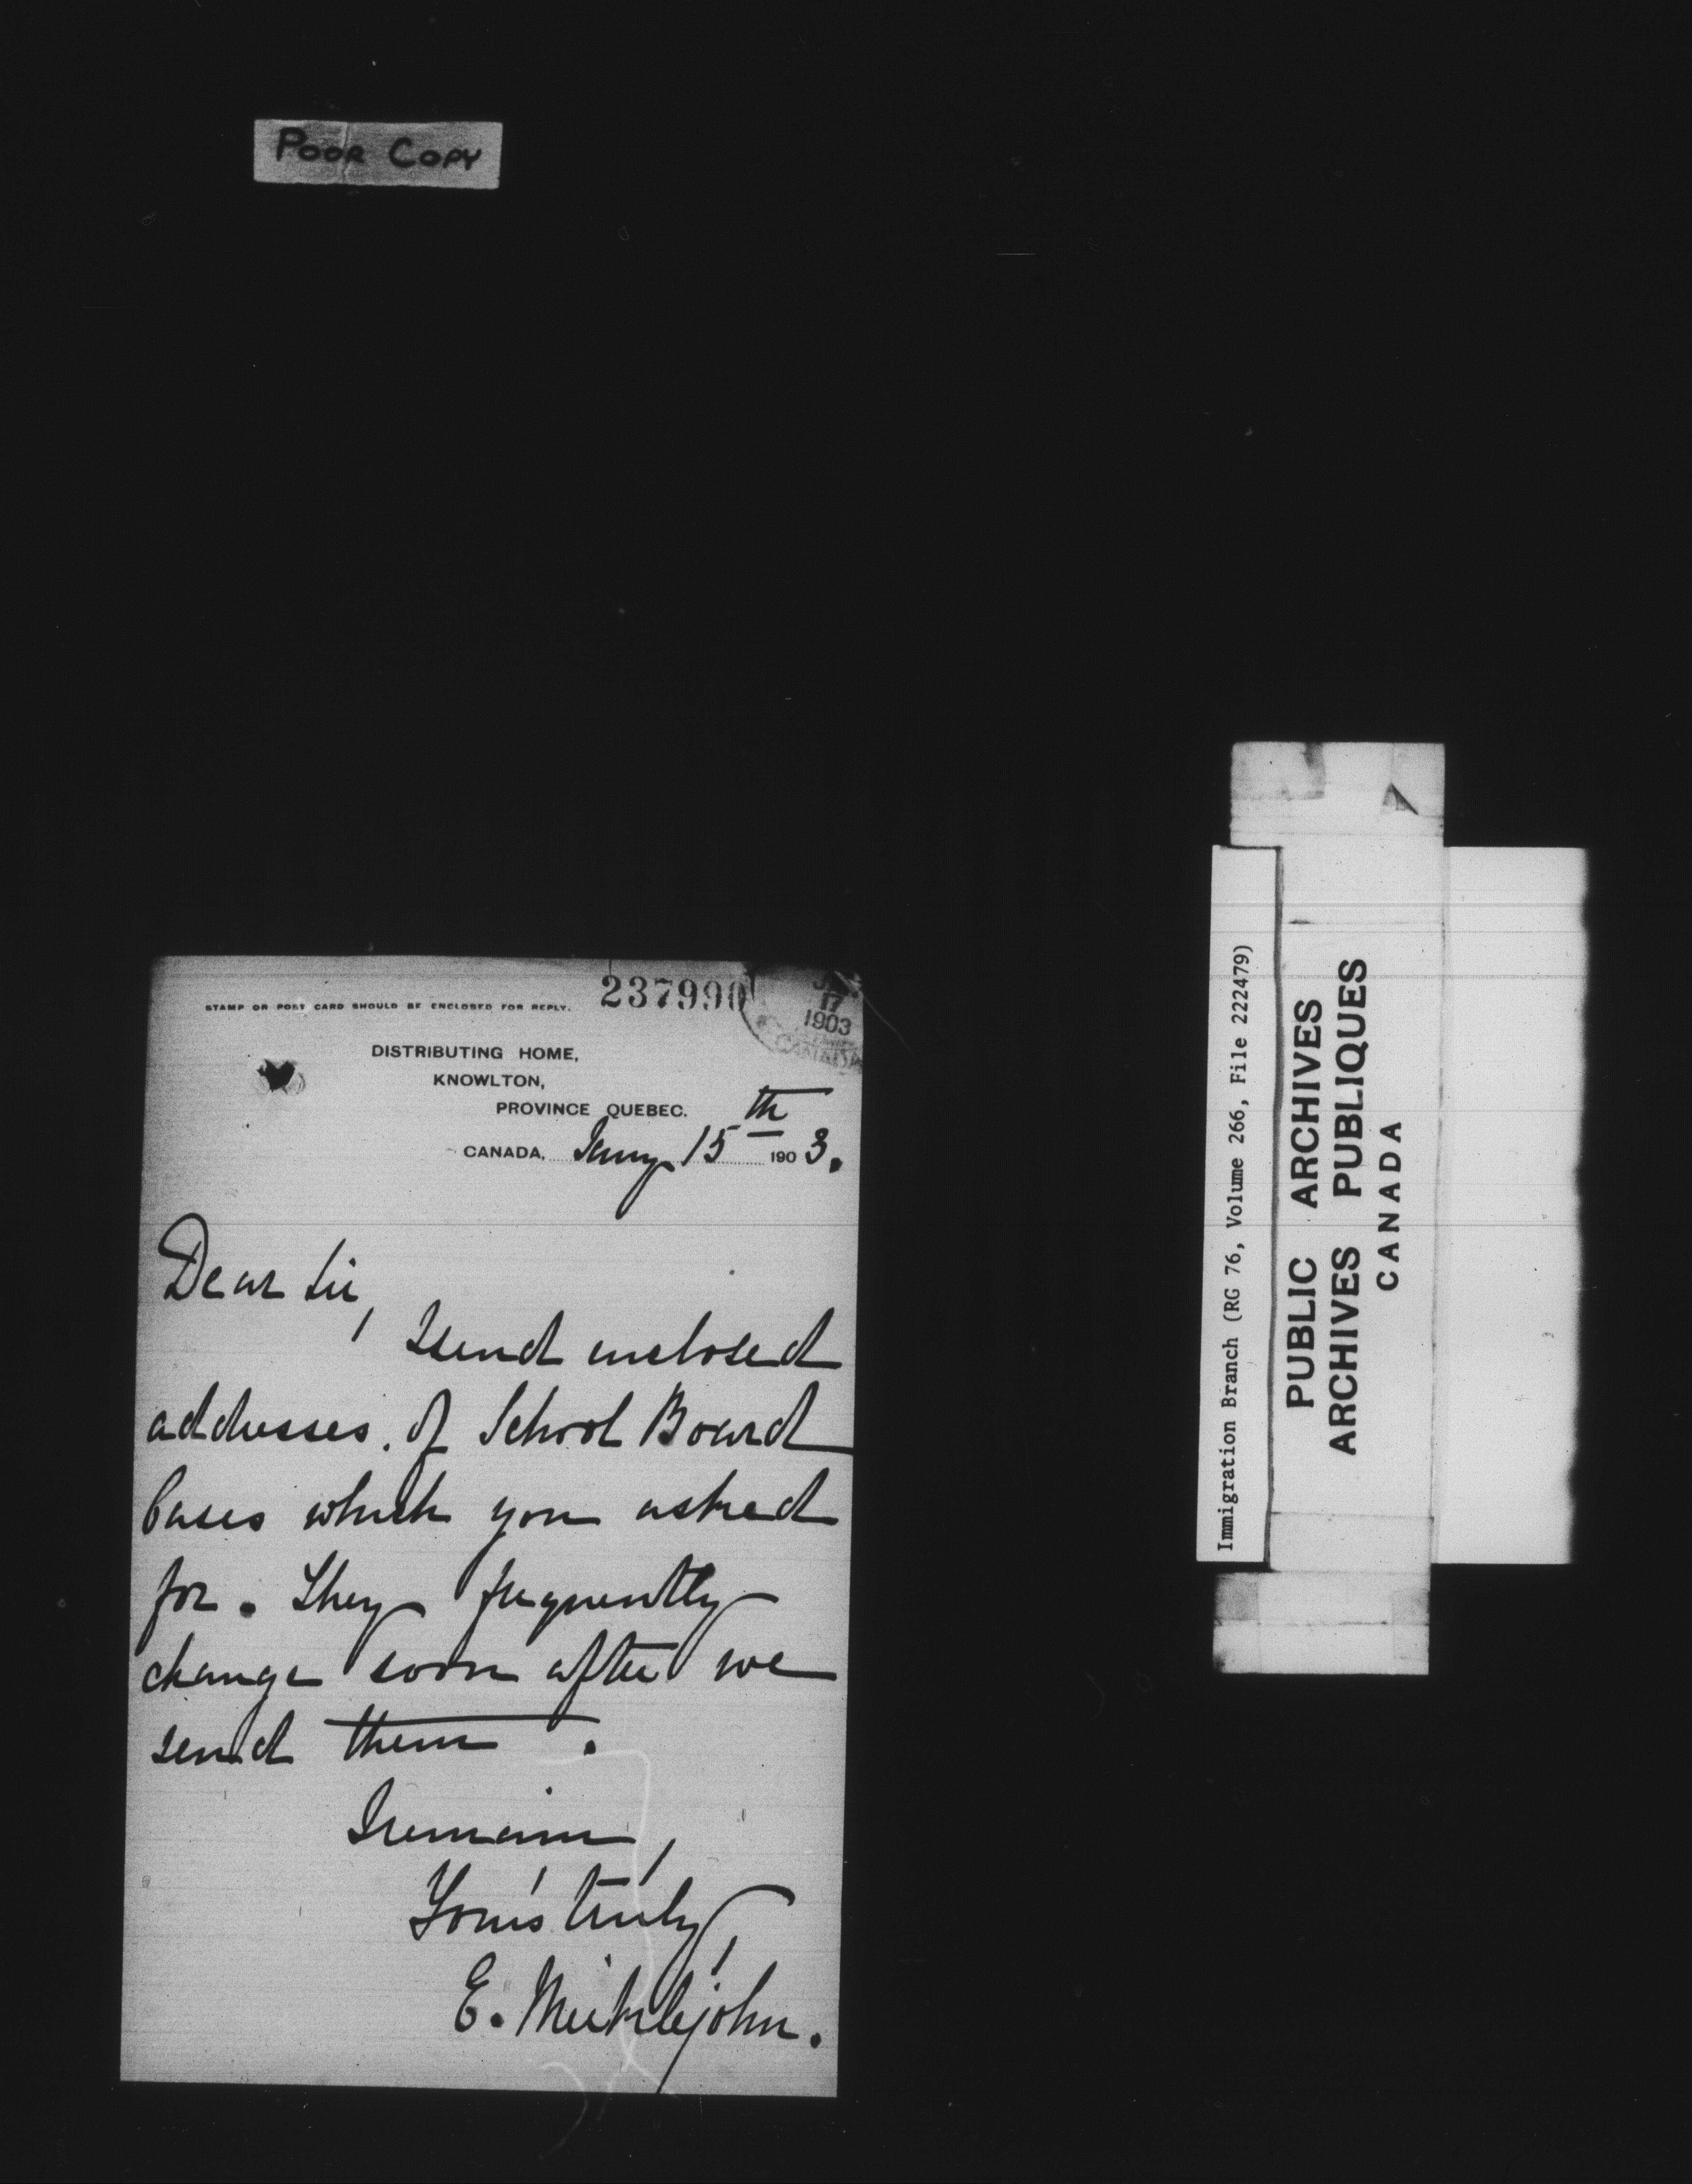 POOR COPY
STAMP OR POST CARD SHOULD BE ENCLOSED FOR REPLY.
237990
17
1903
CANADA
DISTRIBUTING HOME,
KNOWLTON,
PROVINCE QUEBEC.
CANADA, Jany 15th 1903.
Dear Sir,
I send enclosed
addresses of School Board
Cases which you asked
for. They frequently
change soon after we
send them.
I remain,
Yours truly,
E. Meiklejohn.
Immigration Branch (RG 76, Volume 266, File 222479)
PUBLIC ARCHIVES
ARCHIVES PUBLIQUES
CANADA